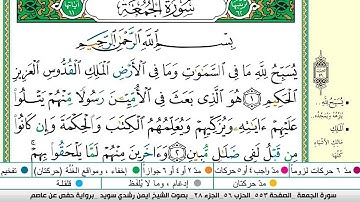 سُورَةُ الْجُمُعَةِ
بِسْمِ اللَّهِ الرَّحْمَٰنِ الرَّحِيمِ
يُسَبِّحُ لِلَّهِ مَا فِي السَّمَٰوَٰتِ وَمَا فِي الْأَرْضِ الْمَلِكِ الْقُدُّوسِ الْعَزِيزِ
الْحَكِيمِ ١ هُوَ الَّذِي بَعَثَ فِي الْأُمِّيِّينَ رَسُولًا مِّنْهُمْ يَتْلُوا
عَلَيْهِمْ ءَايَٰتِهِ وَيُزَكِّيهِمْ وَيُعَلِّمُهُمُ الْكِتَٰبَ وَالْحِكْمَةَ وَإِن كَانُوا
مِن قَبْلُ لَفِي ضَلَٰلٍ مُّبِينٍ ٢ وَءَاخَرِينَ مِنْهُمْ لَمَّا يَلْحَقُوا بِهِمْ
مدّ ٦ حركات لزوماً مدّ ٢ أو ٤ أو ٦ جوازاً إخفاء، ومواقع الغُنَّة (حركتان) تفخيم
مدّ حركتان إدغام، وما لا يُلفَظ قلقلة
سورة الجمعة _ الصفحة ٥٥٣ _ الحزب ٥٦ _ الجزء ٢٨ _ بصوت الشيخ أيمن رشدي سويد _ برواية حفص عن عاصم